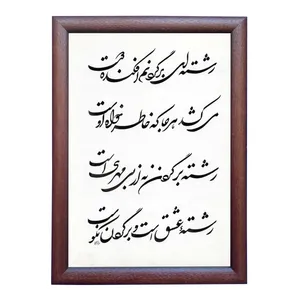 رشته ای بر گردنم افکنده دوست
می کشد هر جا که خاطر خواه اوست
رشته بر گردن نه از بی مهری است
رشته عشق است و بر گردن نکوست